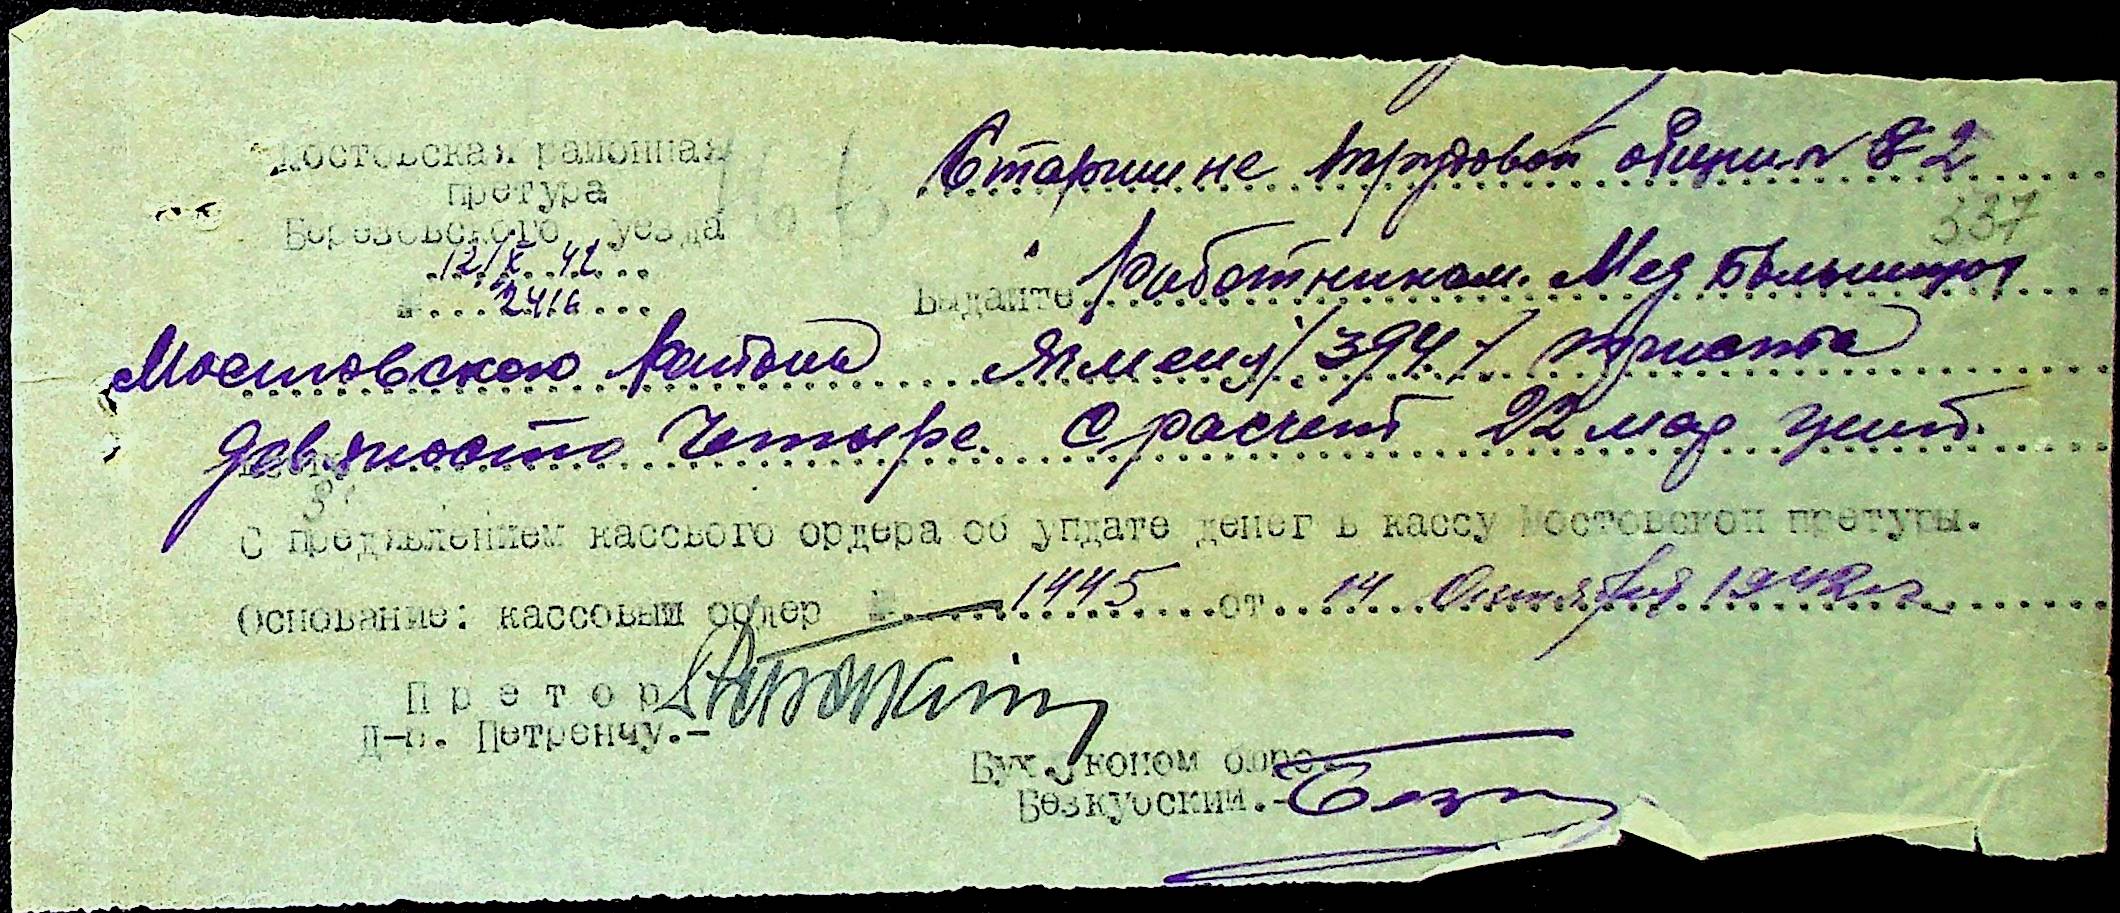 Мостовская районная
претура
Березовского уезда
12/X 42
№ 2416
Старшине трудовой общин № 2
337
Выдайте Работникам. Мед Больницы
Мостовского района ячменя /394/ триста
девяносто Четыре. С расчет 22 мар
С предявлением кассвого ордера об упдате денег в кассу Мостовской претуры.
Основание: кассовый ордер № 1445 от 14 Октября 1942 г
Претор
Д-р. Петренчу.-
Бух. Эконом бюро.
Безкубский.-